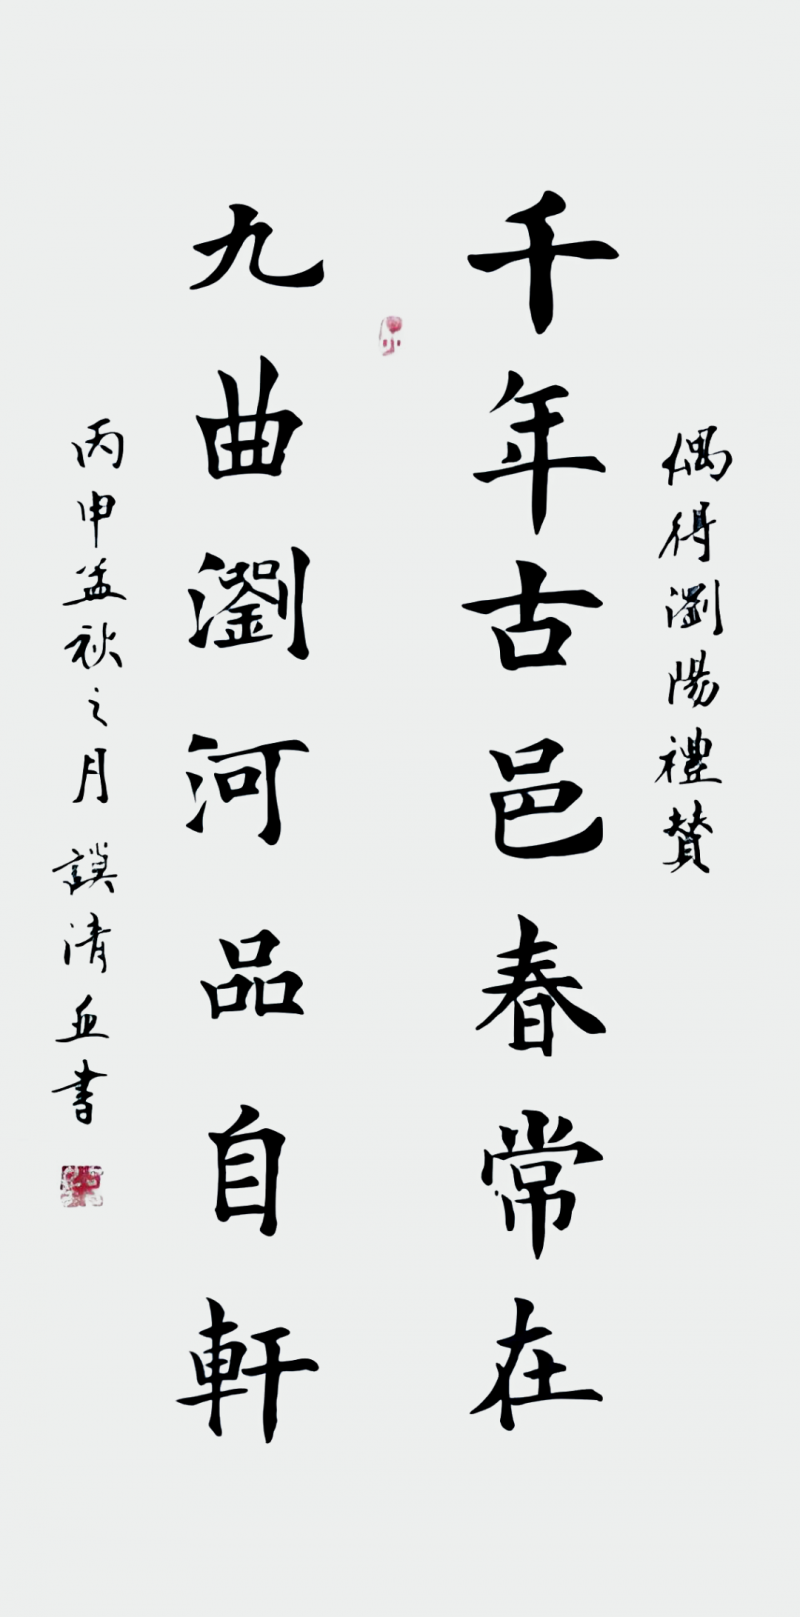 偶得瀏陽禮贊
千年古邑春常在
九曲瀏河品自軒
丙申孟秋之月 謨清並書